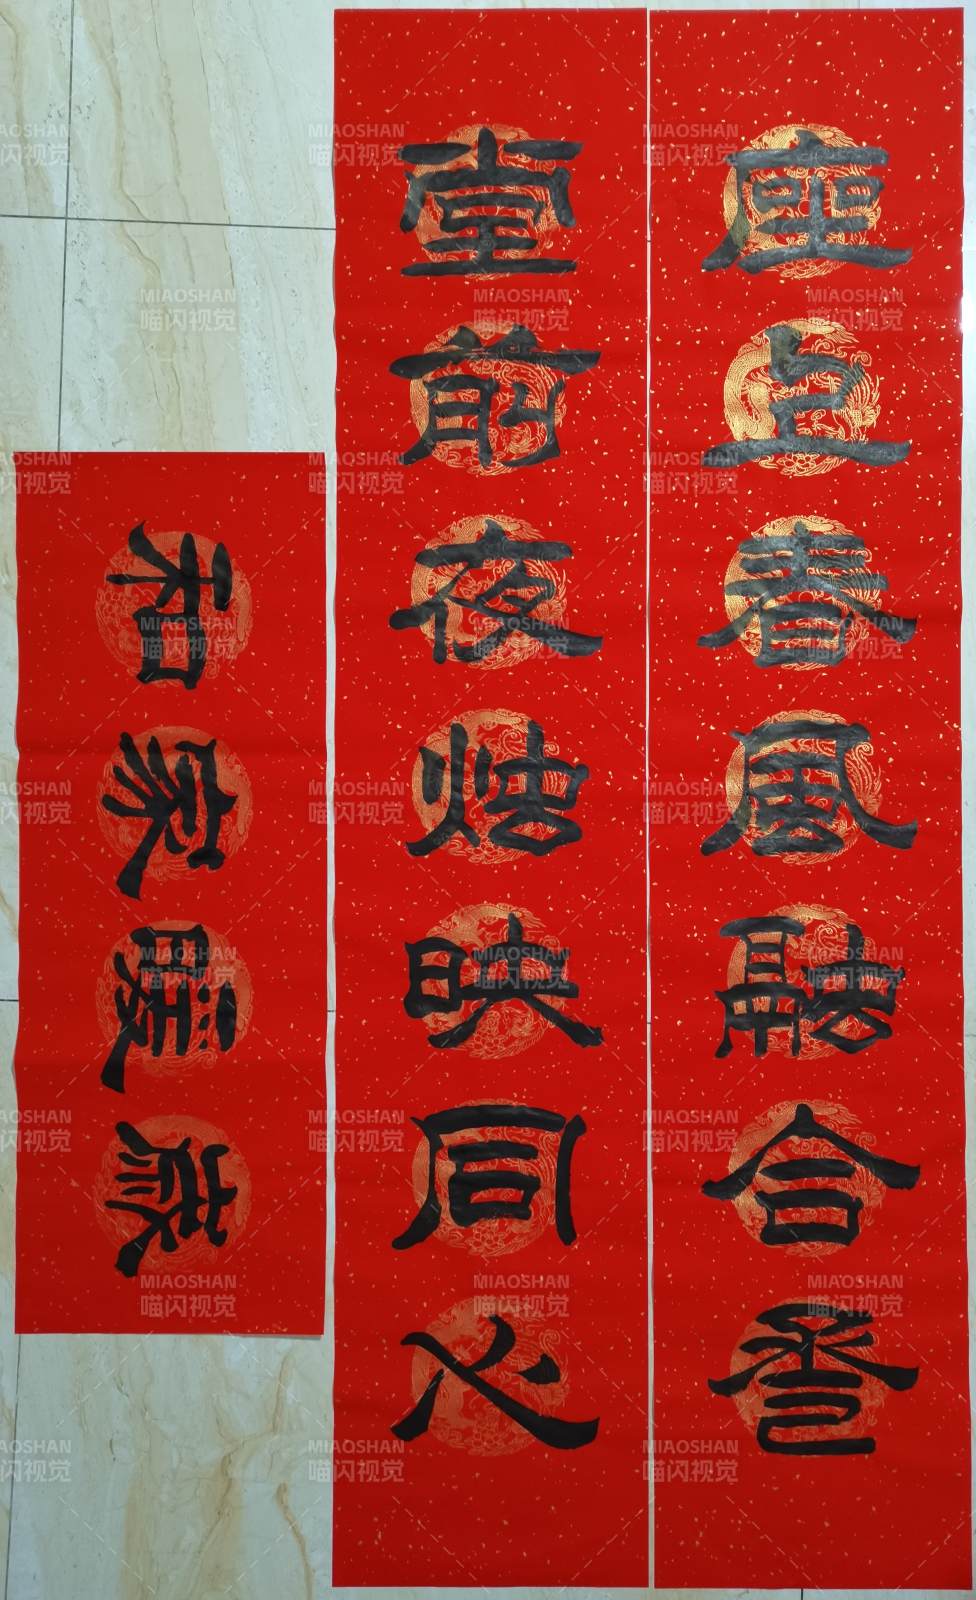 座上春風融合卺
堂前夜烛映同心
和家暖歲
MIAOSHAN
喵闪视觉